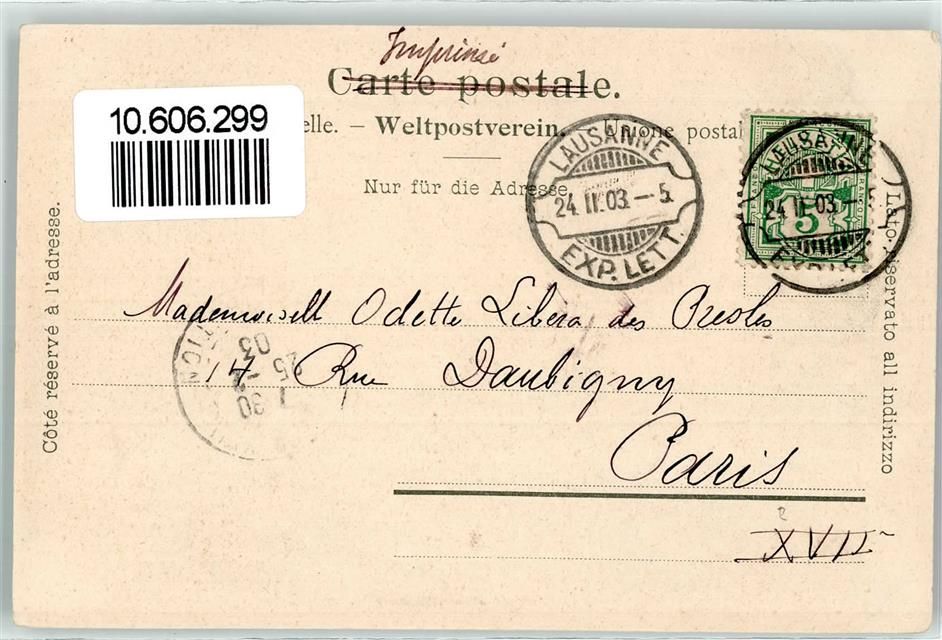 Imprimé
Carte postale.
10.606.299
elle. — Weltpostverein. — Unione postal
Nur für die Adresse.
LAUSANNE
24. II. 03. – 5.
EXP. LETT.
24 II 03. – 5
5
FRANCO
Côté réservé à l'adresse.
Lato riservato all indirizzo
Mademoiselle Odette Libera des Presles
14 Rue Daubigny
Paris
XVII
7 30
25 - 2
03